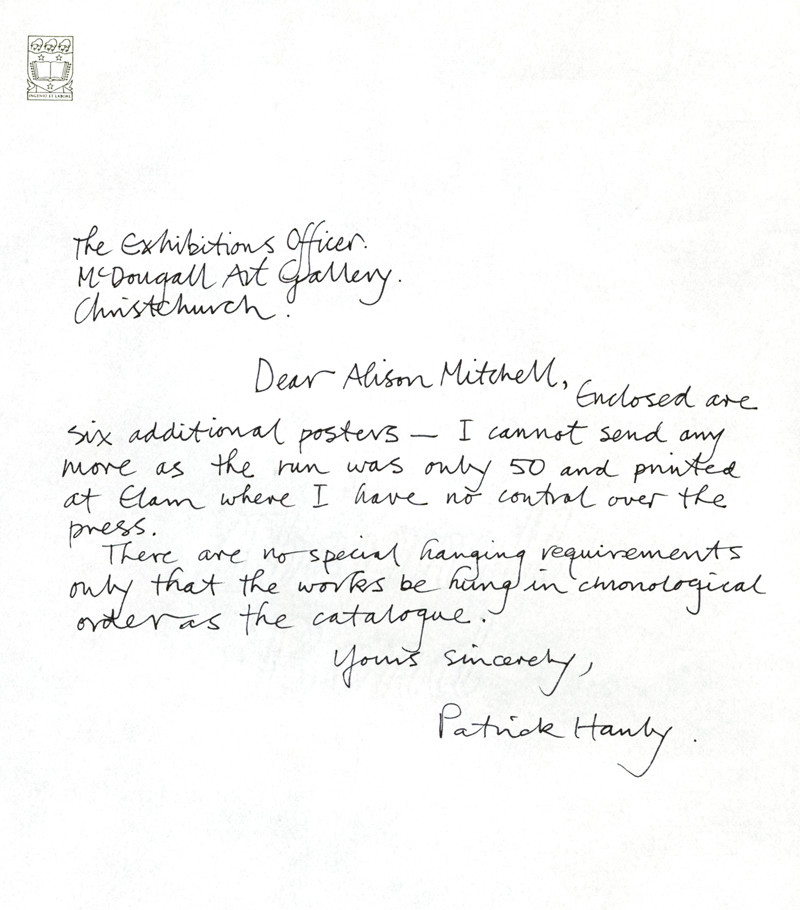 INGENIO ET LABORE
The Exhibitions Officer.
McDougall Art Gallery.
Christchurch.
Dear Alison Mitchell,
Enclosed are
six additional posters — I cannot send any
more as the run was only 50 and printed
at Elam where I have no control over the
press.
There are no special hanging requirements
only that the works be hung in chronological
order as the catalogue.
Yours sincerely,
Patrick Hanly.